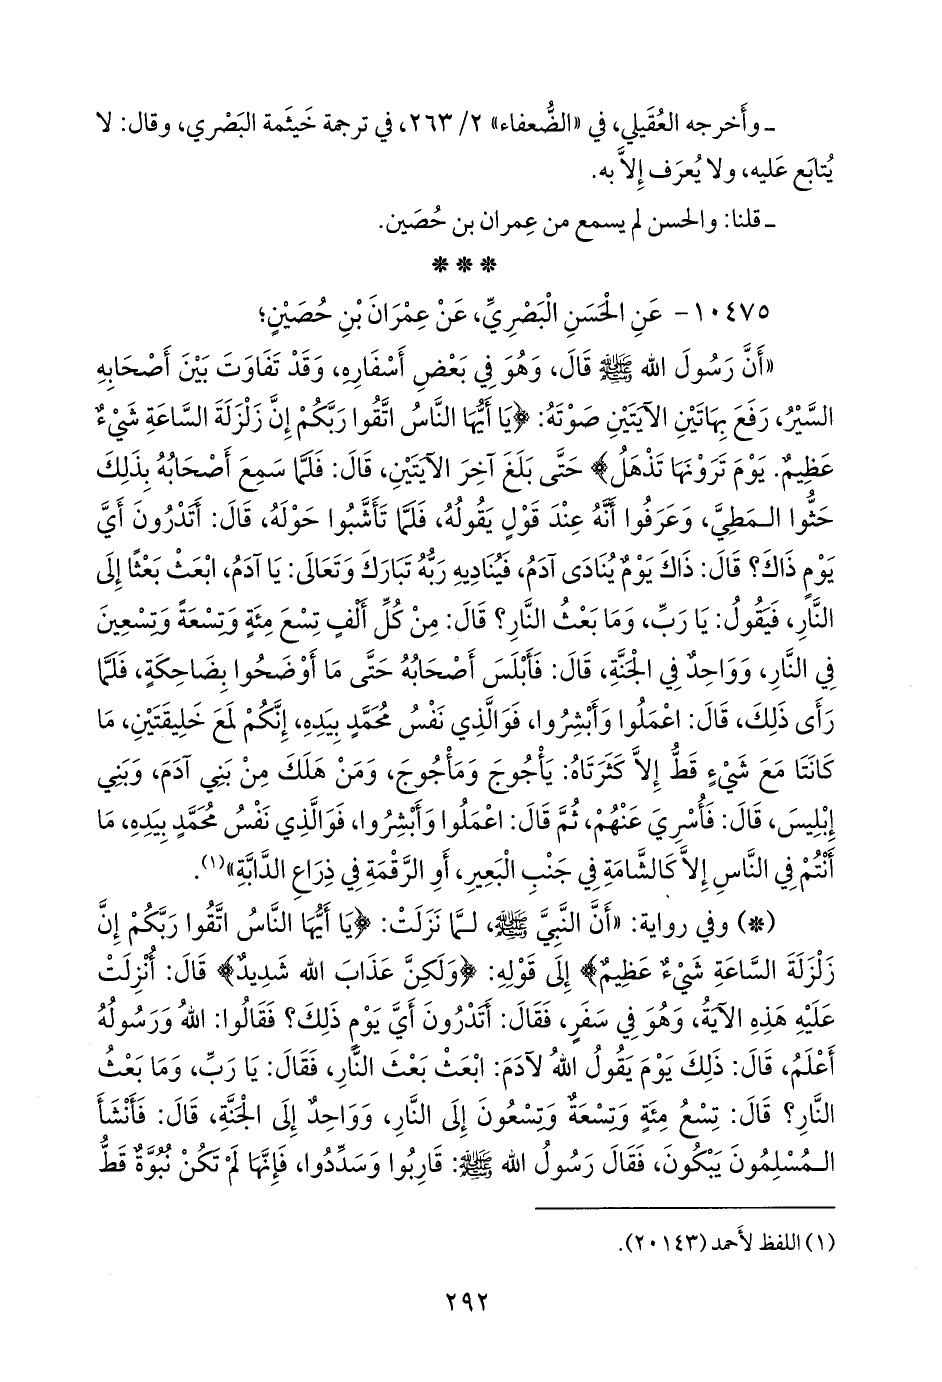 ـ وأَخرجه العُقَيلي، في «الضُّعفاء» ٢/ ٢٦٣، في ترجمة خَيثَمة البَصْري، وقال: لا
يُتابَع عَليه، ولا يُعرَف إِلاَّ به.
ـ قلنا: والحسن لم يسمع من عِمران بن حُصَين.
* * *
١٠٤٧٥ - عَنِ الْحَسَنِ الْبَصْرِيِّ، عَنْ عِمْرَانَ بْنِ حُصَيْنٍ؛
«أَنَّ رَسُولَ الله ﷺ قَالَ، وَهُوَ فِي بَعْضِ أَسْفَارِهِ، وَقَدْ تَفَاوَتَ بَيْنَ أَصْحَابِهِ
السَّيْرُ، رَفَعَ بِهَاتَيْنِ الآيَتَيْنِ صَوْتَهُ: ﴿يَا أَيُّهَا النَّاسُ اتَّقُوا رَبَّكُمْ إِنَّ زَلْزَلَةَ السَّاعَةِ شَيْءٌ
عَظِيمٌ. يَوْمَ تَرَوْنَهَا تَذْهَلُ﴾ حَتَّى بَلَغَ آخِرَ الآيَتَيْنِ، قَالَ: فَلَمَّا سَمِعَ أَصْحَابُهُ بِذَلِكَ
حَثُّوا الْـمَطِيَّ، وَعَرَفُوا أَنَّهُ عِنْدَ قَوْلٍ يَقُولُهُ، فَلَمَّا تَأَشَّبُوا حَوْلَهُ، قَالَ: أَتَدْرُونَ أَيَّ
يَوْمٍ ذَاكَ؟ قَالَ: ذَاكَ يَوْمٌ يُنَادَى آدَمُ، فَيُنَادِيهِ رَبُّهُ تَبَارَكَ وَتَعَالَى: يَا آدَمُ، ابْعَثْ بَعْثًا إِلَى
النَّارِ، فَيَقُولُ: يَا رَبِّ، وَمَا بَعْثُ النَّارِ؟ قَالَ: مِنْ كُلِّ أَلْفٍ تِسْعَ مِئَةٍ وَتِسْعَةً وَتِسْعِينَ
فِي النَّارِ، وَوَاحِدٌ فِي الْجَنَّةِ، قَالَ: فَأَبْلَسَ أَصْحَابُهُ حَتَّى مَا أَوْضَحُوا بِضَاحِكَةٍ، فَلَمَّا
رَأَى ذَلِكَ، قَالَ: اعْمَلُوا وَأَبْشِرُوا، فَوَالَّذِي نَفْسُ مُحَمَّدٍ بِيَدِهِ، إِنَّكُمْ لَمَعَ خَلِيقَتَيْنِ، مَا
كَانَتَا مَعَ شَيْءٍ قَطُّ إِلاَّ كَثَرَتَاهُ: يَأْجُوجَ وَمَأْجُوجَ، وَمَنْ هَلَكَ مِنْ بَنِي آدَمَ، وَبَنِي
إِبْلِيسَ، قَالَ: فَأُسْرِيَ عَنْهُمْ، ثُمَّ قَالَ: اعْمَلُوا وَأَبْشِرُوا، فَوَالَّذِي نَفْسُ مُحَمَّدٍ بِيَدِهِ، مَا
أَنْتُمْ فِي النَّاسِ إِلاَّ كَالشَّامَةِ فِي جَنْبِ الْبَعِيرِ، أَوِ الرَّقْمَةِ فِي ذِرَاعِ الدَّابَّةِ»(١).
(*) وفي رواية: «أَنَّ النَّبِيَّ ﷺ، لَـمَّا نَزَلَتْ: ﴿يَا أَيُّهَا النَّاسُ اتَّقُوا رَبَّكُمْ إِنَّ
زَلْزَلَةَ السَّاعَةِ شَيْءٌ عَظِيمٌ﴾ إِلَى قَوْلِهِ: ﴿وَلَكِنَّ عَذَابَ الله شَدِيدٌ﴾ قَالَ: أُنْزِلَتْ
عَلَيْهِ هَذِهِ الآيَةُ، وَهُوَ فِي سَفَرٍ، فَقَالَ: أَتَدْرُونَ أَيَّ يَوْمٍ ذَلِكَ؟ فَقَالُوا: اللهُ وَرَسُولُهُ
أَعْلَمُ، قَالَ: ذَلِكَ يَوْمَ يَقُولُ اللهُ لآدَمَ: ابْعَثْ بَعْثَ النَّارِ، فَقَالَ: يَا رَبِّ، وَمَا بَعْثُ
النَّارِ؟ قَالَ: تِسْعُ مِئَةٍ وَتِسْعَةٌ وَتِسْعُونَ إِلَى النَّارِ، وَوَاحِدٌ إِلَى الْجَنَّةِ، قَالَ: فَأَنْشَأَ
الْـمُسْلِمُونَ يَبْكُونَ، فَقَالَ رَسُولُ الله ﷺ: قَارِبُوا وَسَدِّدُوا، فَإِنَّهَا لَمْ تَكُنْ نُبُوَّةٌ قَطُّ
(١) اللفظ لأَحمد (٢٠١٤٣).
٢٩٢